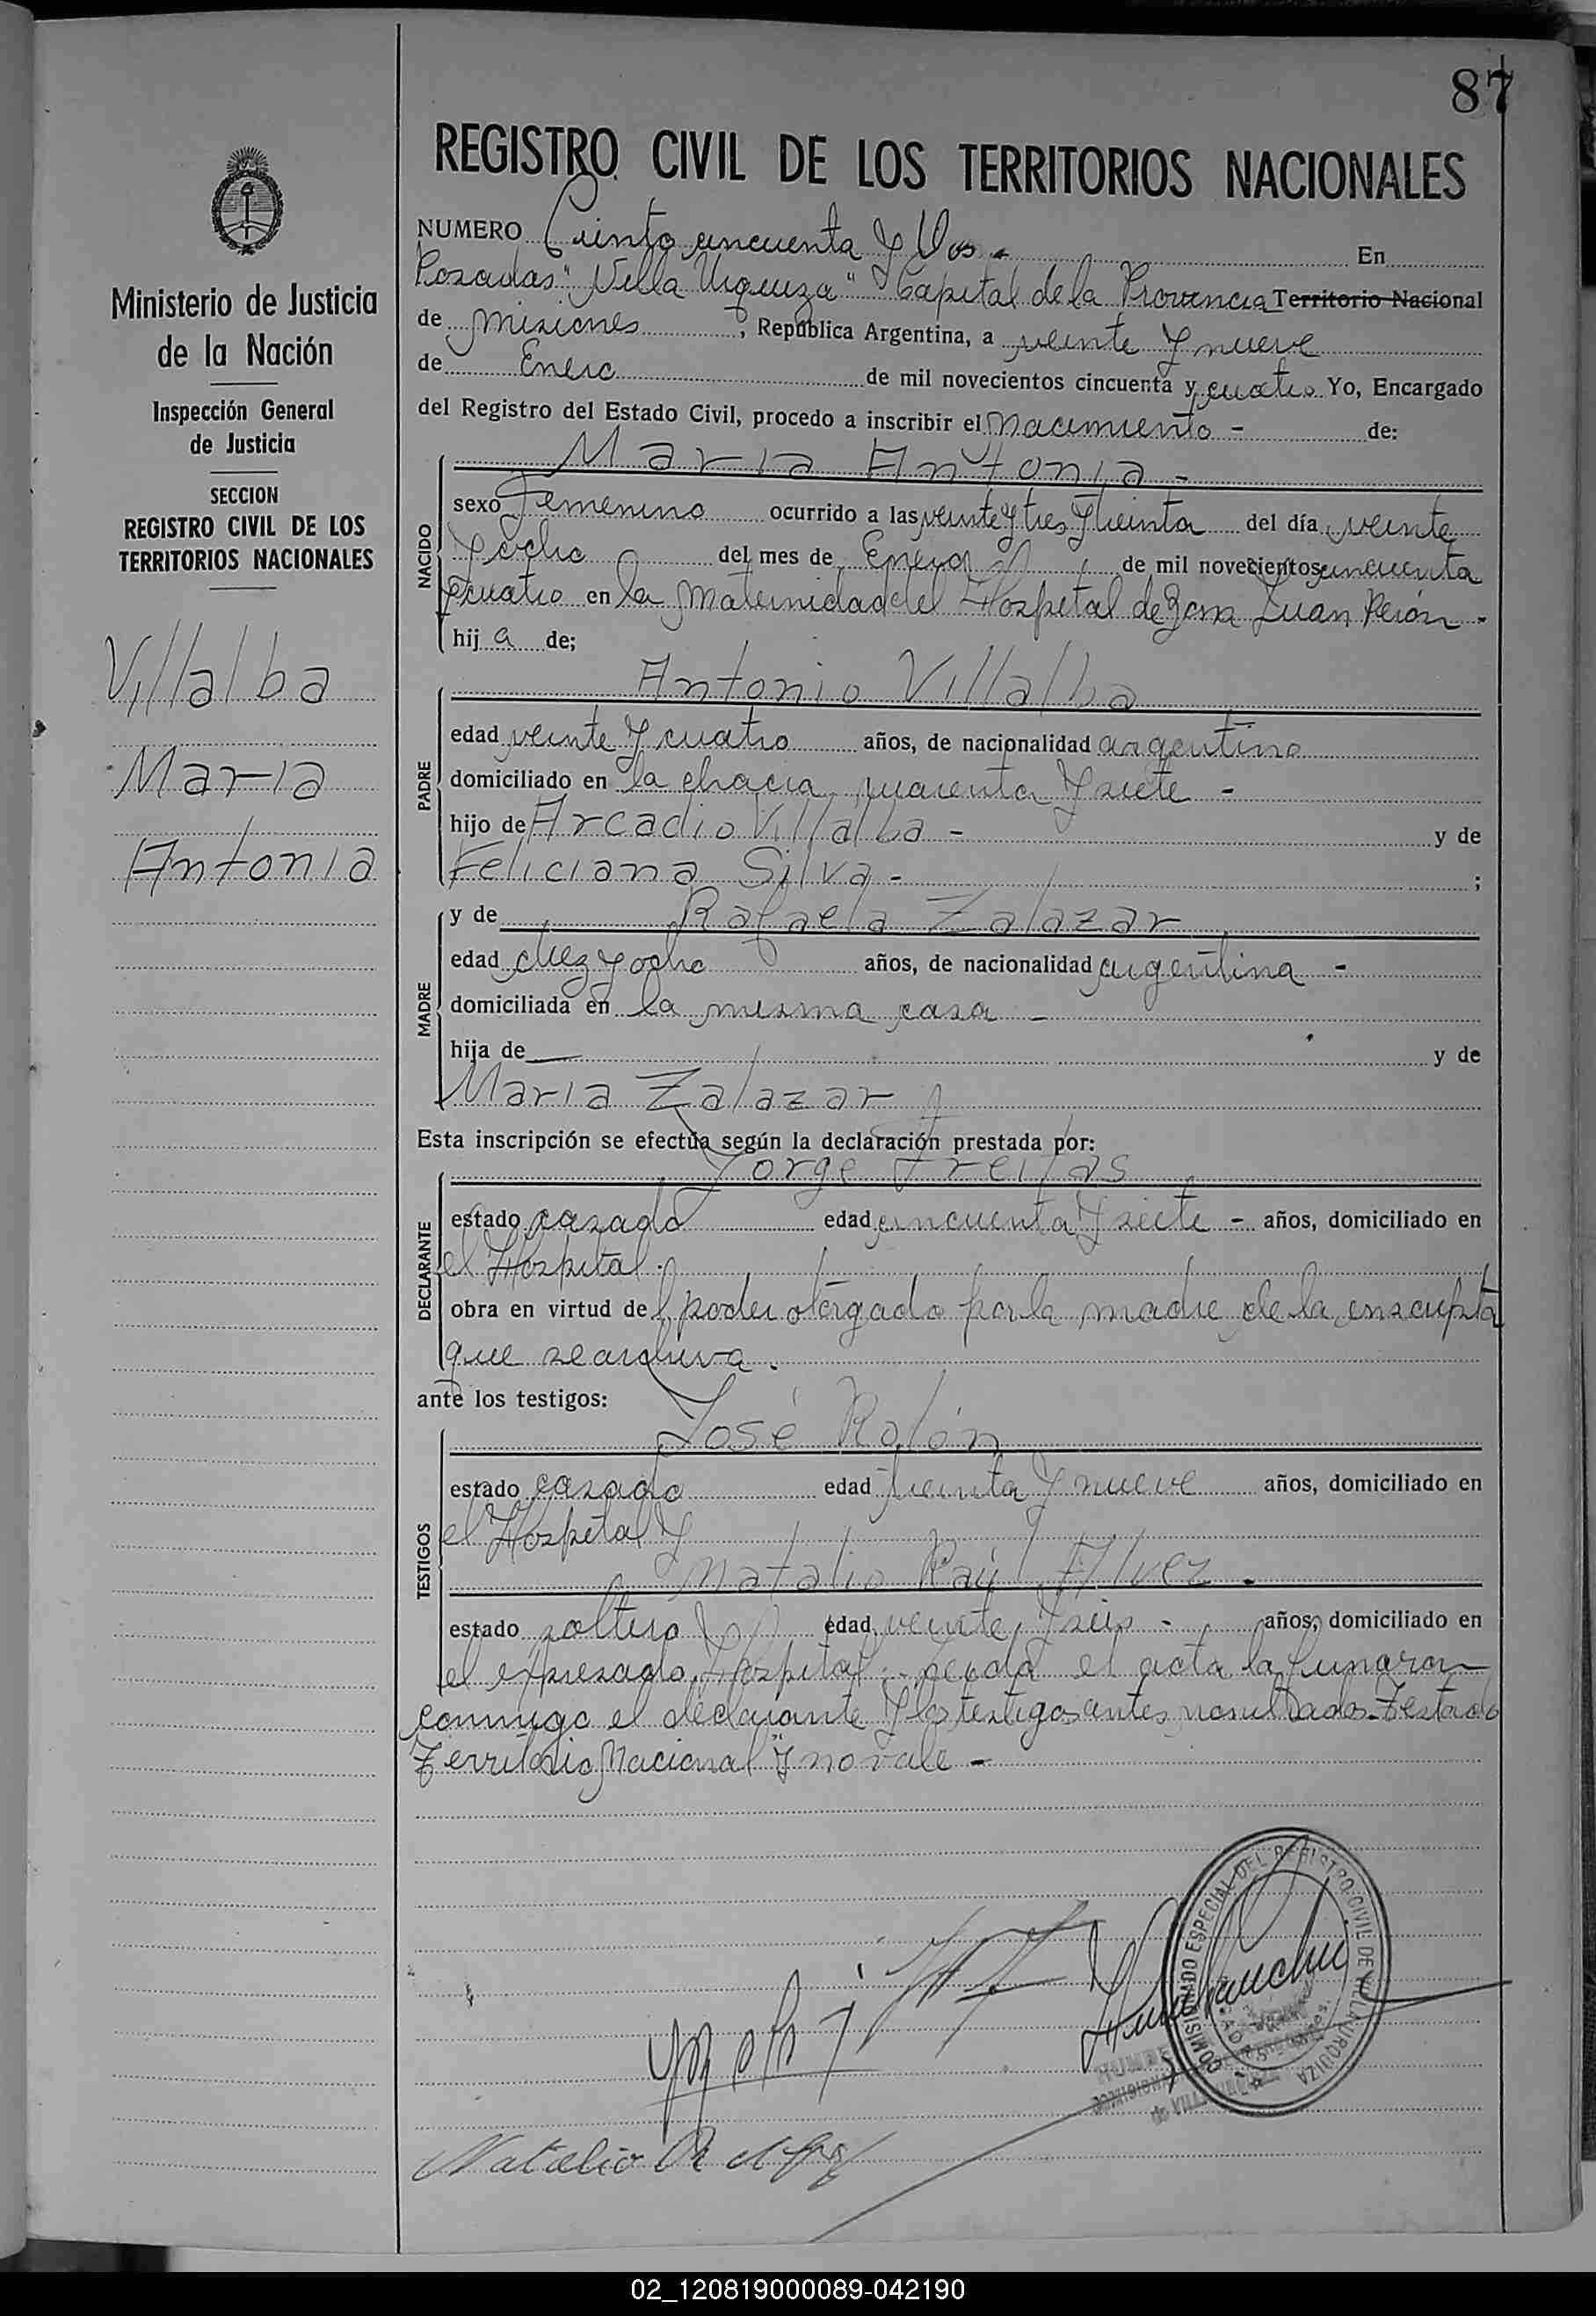 87
REGISTRO CIVIL DE LOS TERRITORIOS NACIONALES
Ministerio de Justicia
de la Nación
Inspección General
de Justicia
SECCION
REGISTRO CIVIL DE LOS
TERRITORIOS NACIONALES
Villalba
Maria
Antonia
NUMERO Ciento cincuenta y Dos - En
Posadas "Villa Urquiza" Capital de la Provincia Territorio Nacional
de Misiones, República Argentina, a veinte y nueve
de Enero de mil novecientos cincuenta y cuatro Yo, Encargado
del Registro del Estado Civil, procedo a inscribir el nacimiento - de:
Maria Antonia -
NACIDO
sexo Femenino ocurrido a las veinte y tres y treinta del día veinte
y ocho del mes de Enero de mil novecientos cincuenta
y cuatro en la Maternidad del Hospital de Zona Juan Perón -
hij a de;
PADRE
Antonio Villalba
edad veinte y cuatro años, de nacionalidad argentino
domiciliado en la chacra cuarenta y siete -
hijo de Arcadio Villalba - y de
Feliciana Silva - ;
MADRE
y de Rafaela Zalazar
edad diez y ocho años, de nacionalidad argentina -
domiciliada en la misma casa -
hija de — y de
Maria Zalazar
Esta inscripción se efectúa según la declaración prestada por:
DECLARANTE
Jorge Freitas
estado casado edad cincuenta y siete - años, domiciliado en
el Hospital.
obra en virtud del poder otorgado por la madre de la inscripta
que se archiva.
ante los testigos:
TESTIGOS
José Rolón
estado casado edad treinta y nueve años, domiciliado en
el Hospital y
Natalio Raúl Alvez.
estado soltero edad veinte y seis - años, domiciliado en
el expresado Hospital. - Leída el acta la firmaron
conmigo el declarante y los testigos antes nombrados. Testado
"Territorio Nacional" y no vale -
COMISIONADO ESPECIAL DEL REGISTRO CIVIL DE VILLA URQUIZA
Natalio R
02_120819000089-042190